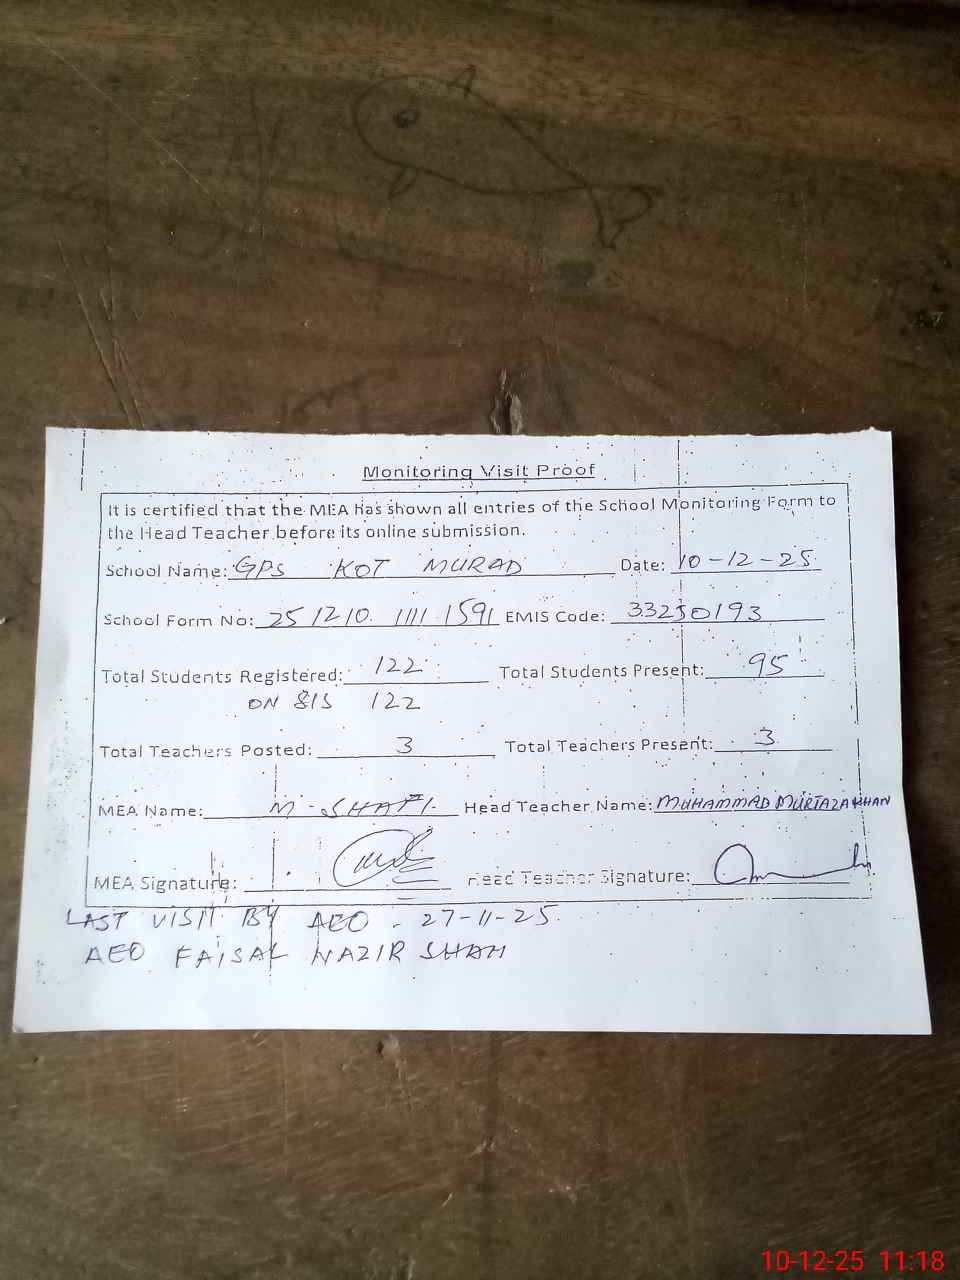 Monitoring Visit Proof
It is certified that the MEA has shown all entries of the School Monitoring Form to
the Head Teacher before its online submission.
School Name: GPS KOT MURAD Date: 10-12-25
School Form No: 251210 1111 1591 EMIS Code: 33230193
Total Students Registered: 122 Total Students Present: 95
ON SIS 122
Total Teachers Posted: 3 Total Teachers Present: 3
MEA Name: M-SHAFI. Head Teacher Name: MUHAMMAD MURTAZA KHAN
MEA Signature: Head Teacher Signature:
LAST VISIT BY AEO - 27-11-25
AEO FAISAL NAZIR SHAH
10-12-25 11:18